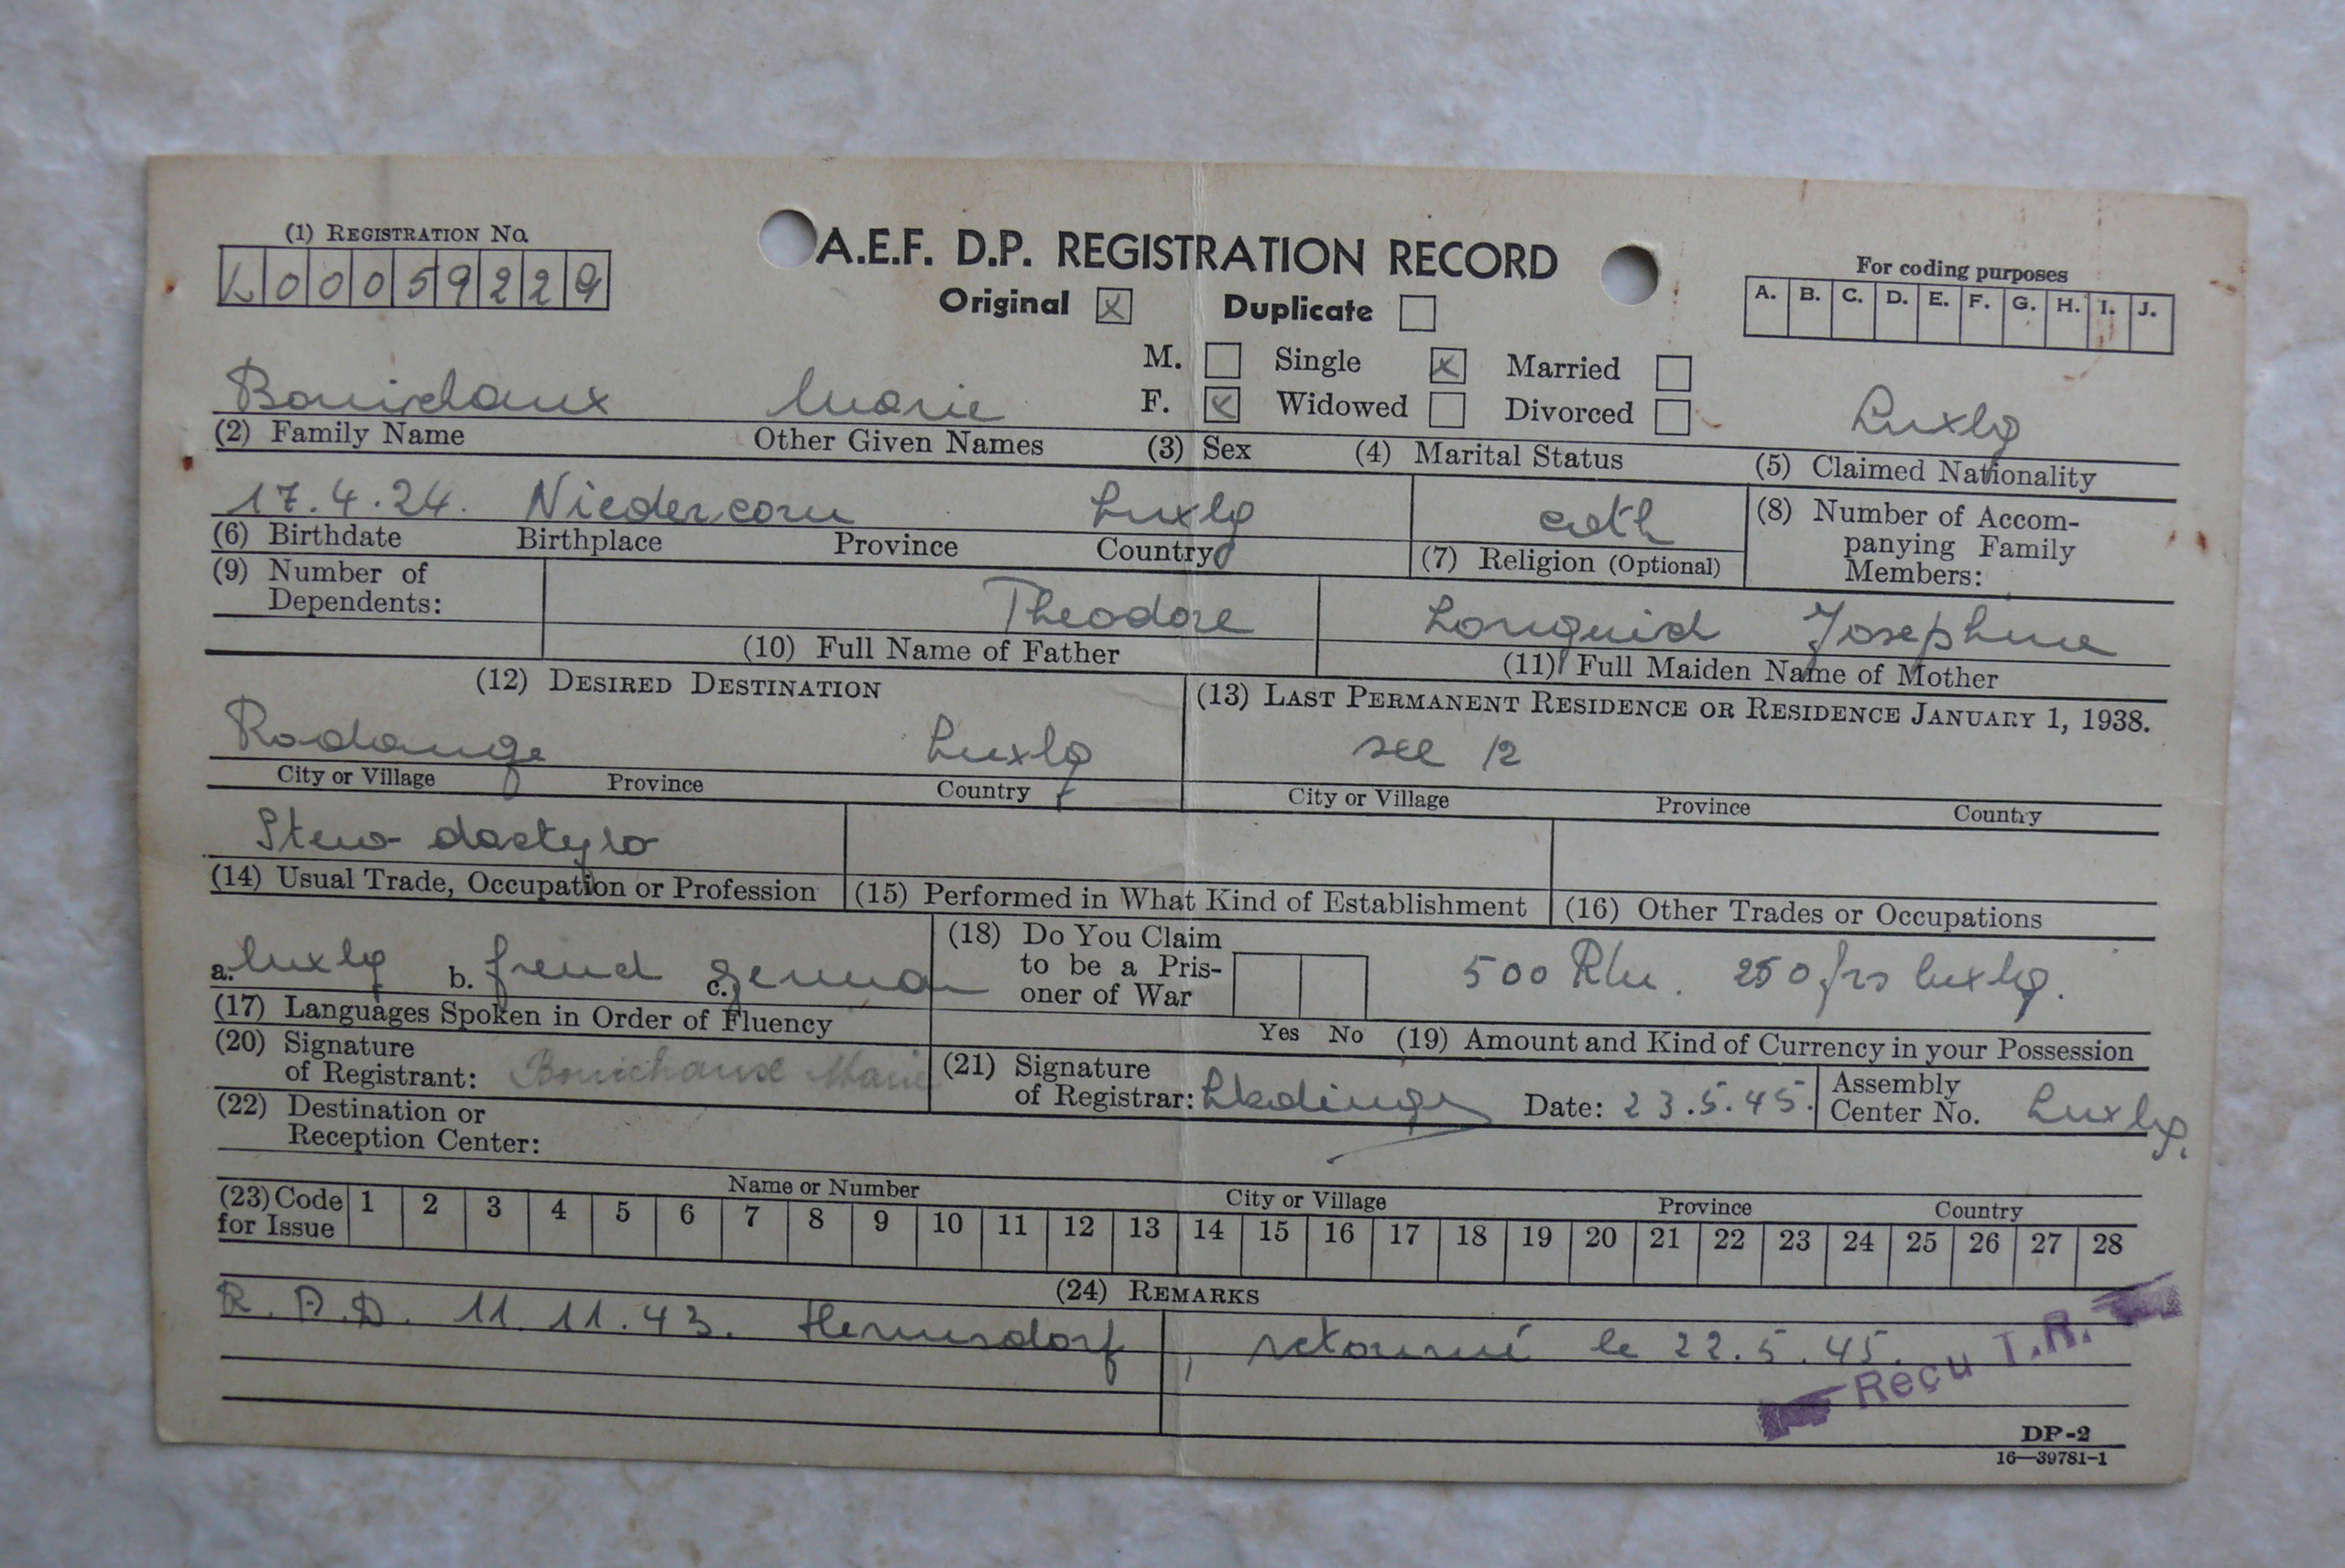 (1) REGISTRATION NO.
L 0 0 0 5 9 2 2 9
A.E.F. D.P. REGISTRATION RECORD
Original x Duplicate
For coding purposes
A. B. C. D. E. F. G. H. I. J.
M. Single x Married
Marie F. x Widowed Divorced Luxbg
(2) Family Name Other Given Names (3) Sex (4) Marital Status (5) Claimed Nationality
17.4.24. Niedercorn Luxbg cath
(6) Birthdate Birthplace Province Country (7) Religion (Optional)
(8) Number of Accom-
panying Family
Members:
(9) Number of
Dependents:
Theodore Josephine
(10) Full Name of Father (11) Full Maiden Name of Mother
(12) DESIRED DESTINATION (13) LAST PERMANENT RESIDENCE OR RESIDENCE JANUARY 1, 1938.
Rodange Luxbg see 12
City or Village Province Country City or Village Province Country
Steno dactylo
(14) Usual Trade, Occupation or Profession (15) Performed in What Kind of Establishment (16) Other Trades or Occupations
a. luxbg b. c. german
(17) Languages Spoken in Order of Fluency
(18) Do You Claim
to be a Pris-
oner of War
Yes No
500 Rm. 250 frs luxbg.
(19) Amount and Kind of Currency in your Possession
(20) Signature
of Registrant: Marie
(21) Signature
of Registrar: Date: 23.5.45.
Assembly
Center No. Luxbg.
(22) Destination or
Reception Center:
Name or Number City or Village Province Country
(23) Code
for Issue
1 2 3 4 5 6 7 8 9 10 11 12 13 14 15 16 17 18 19 20 21 22 23 24 25 26 27 28
(24) REMARKS
R.A.D. 11.11.43. Hermsdorf, retourné le 22.5.45.
Reçu I.R.
DP-2
16—39781-1